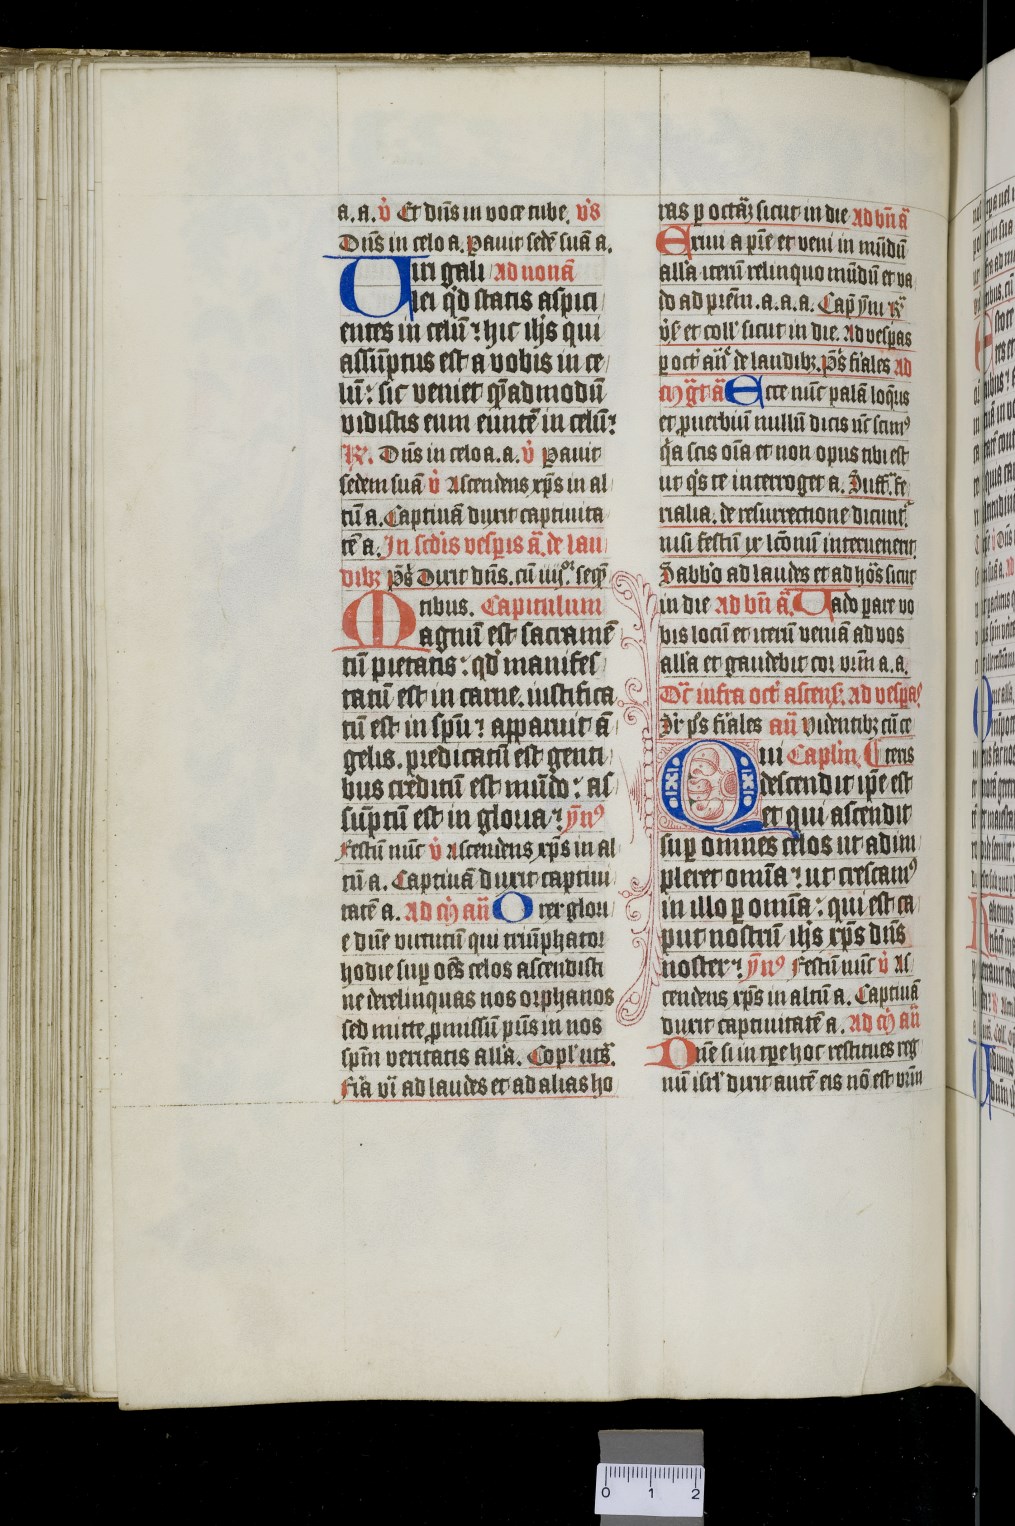 a. a. v̾ Et dn̄s in voce tube. v̾s
Dn̄s in celo a. Pauit sedē suā a.
Uiri gali Ad nonā
lei qͥd statis aspici
entes in celū ⁊ hic ih̄s qui
assūptus est a vobis in ce
lū: sic veniet q̄admodū
vidistis eum euntē in celū:
R̷. Dn̄s in celo a. a. v̾ Pauit
sedem suā v̾ Ascendens xp̄s in al
tū a. Captiuā duxit captiuita
tē a. In scd̄is vesp̄is ā. de lau
dibꝫ p̄s Dixit dn̄s. cū iiijᵒʳ seq̄n
tibus. Capitulum
Magnū est sacramē
tū pietatis: qd̄ manifes
tatū est in carne. iustifica
tū est in sp̄u ⁊ apparuit ā
gelis. predicatū est genti
bus creditū est mūdo: as
sūptū est in gloria: ym̄ꝰ
Festū nūc v̾ Ascendens xp̄s in al
tū a. Captiuā duxit captiui
tatē a. Ad m̄ an̄ O rex glori
e dn̄e virtutū qui triūphator
hodie sup̄ oēs celos ascendisti
ne derelinquas nos orphanos
sed mitte promissū pr̄is in nos
sp̄m veritatis all̄a. Copl̄ ut s̄.
Fr̄ia vi ad laudes et ad alias ho
ras p octāꝫ sicut in die Ad bn̄ ā
Exiui a pr̄e et veni in mūdū
all̄a iterū relinquo mūdū et va
do ad prēm. a. a. a. Cap̄ ym̄ R̷
v̾s et coll̄ sicut in die. Ad vesp̄as
p oct̄ an̄ de laudibꝫ. p̄s fr̄iales Ad
mḡt ā Ecce nūc palā loq̄ris
et puerbiū nullū dicis nūc scimꝰ
qͥa scis oīa et non opus tibi est
ut qͥs te interroget a. Suffr̄. fe
rialia. de resurrectione dicunt̄
nisi festū ix lc̄onū interuenerit
Sabbō ad laudes et ad hōs sicut
in die Ad bn̄ ā. Uado pare vo
bis locū et iterū veniā ad vos
all̄a et gaudebit cor vr̄m a. a.
Dc̄ infra oct̄ ascens̄. Ad vesp̄aꝰ
Sr̄ p̄s fr̄iales an̄ Videntibꝫ cū ce
Qui Capl̄m. tens
descendit ip̄e est
et qui ascendit
sup̄ omnes celos ut adim
pleret omīa ⁊ ut crescamꝰ
in illo p omīa: qui est ca
put nostrū ih̄s xp̄s dn̄s
noster: ym̄ꝰ Festū nūc v̾ As
cendens xp̄s in altū a. Captiuā
duxit captiuitatē a. Ad m̄ an̄
Dn̄e si in tp̄e hoc restitues reg
nū isrl̄ dixit autē eis nō est vr̄m